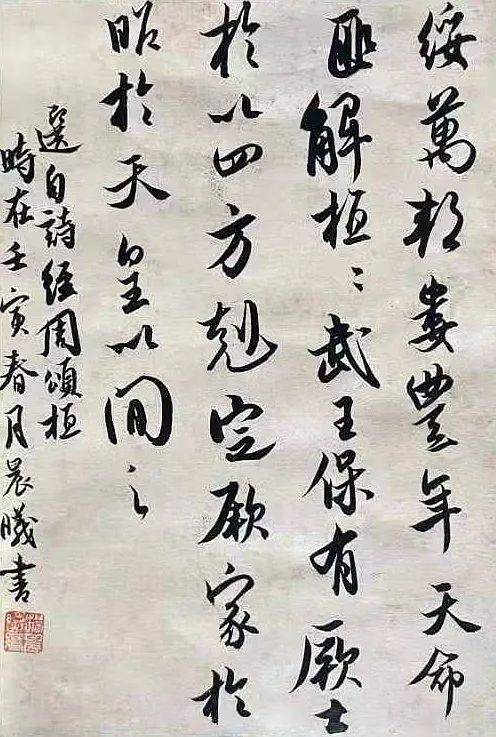 綏萬邦婁豐年天命
匪解桓〻武王保有厥士
於以四方克定厥家於
昭於天皇以間之
選自詩經周頌桓
時在壬寅春月晨曦書